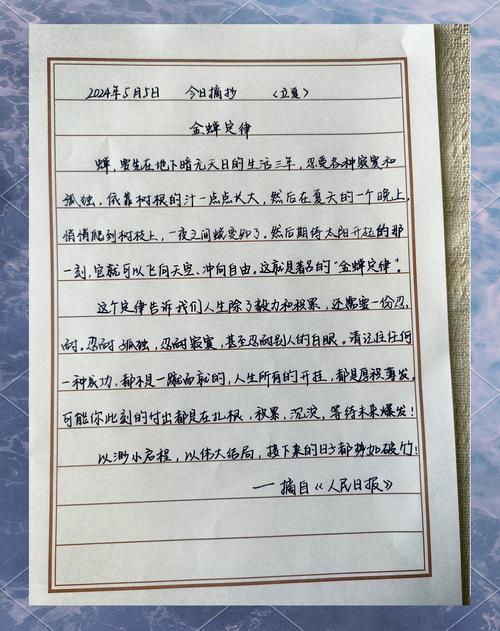 2024年5月5日 今日摘抄 《立夏》
金蝉定律
蝉,要先在地下暗无天日的生活三年,忍受各种寂寞和
孤独,依靠树根的汁一点点长大,然后在夏天的一个晚上,
悄悄爬到树枝上,一夜之间蜕变知了。然后期待太阳升起的那
一刻,它就可以飞向天空、冲向自由。这就是著名的“金蝉定律”。
这个定律告诉我们人生除了毅力和积累,还需要一份忍
耐。忍耐孤独,忍耐寂寞,甚至忍耐别人的白眼。请记住任何
一种成功,都不是一蹴而就的,人生所有的开挂,都是厚积薄发。
可能你此刻的付出都是在扎根,积累,沉淀,等待未来爆发!
以渺小启程,以伟大结局,接下来的日子都势如破竹!
——摘自《人民日报》